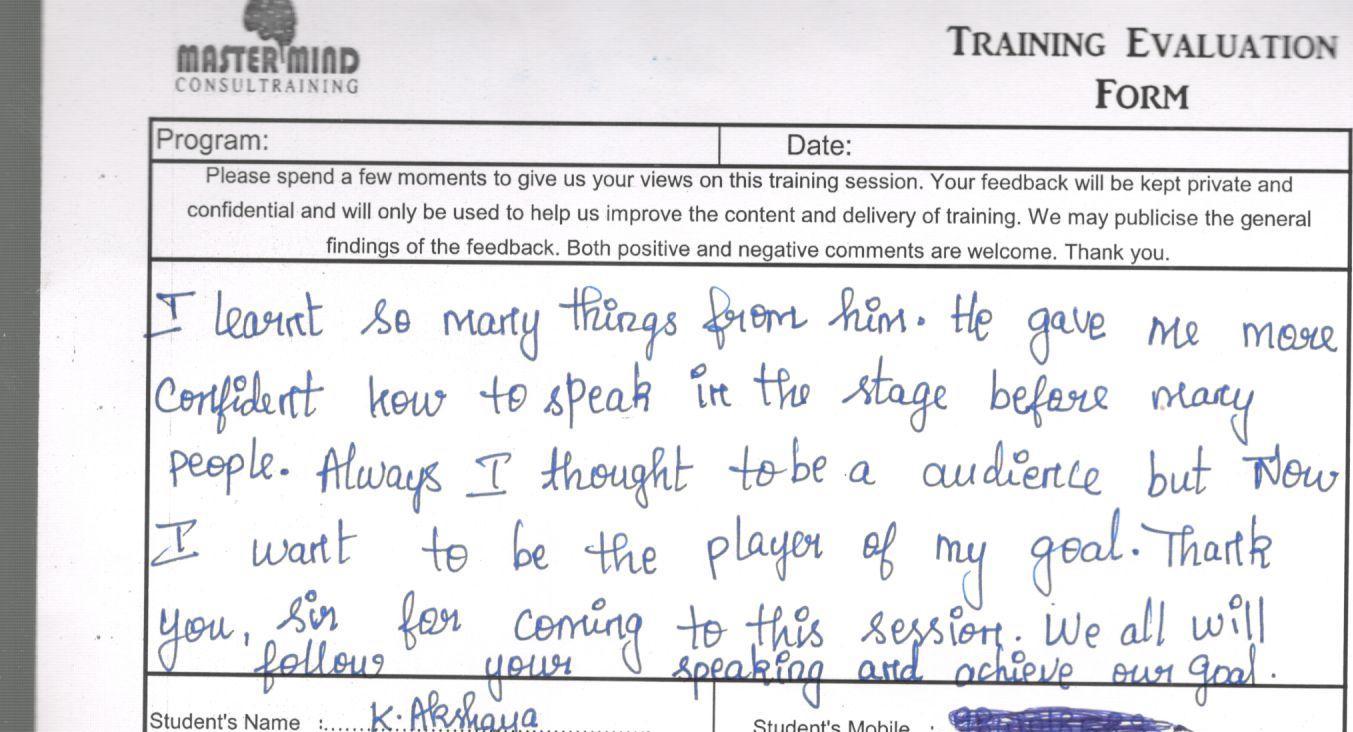 MASTER MIND
CONSULTRAINING
TRAINING EVALUATION
FORM
Program:
Date:
Please spend a few moments to give us your views on this training session. Your feedback will be kept private and
confidential and will only be used to help us improve the content and delivery of training. We may publicise the general
findings of the feedback. Both positive and negative comments are welcome. Thank you.
I learnt so many things from him. He gave me more
confident how to speak in the stage before many
people. Always I thought to be a audience but Now
I want to be the player of my goal. Thank
you, sir for coming to this session. We all will
follow your speaking and achieve our goal.
Student's Name :...... K. Akshaya
Student's Mobile :